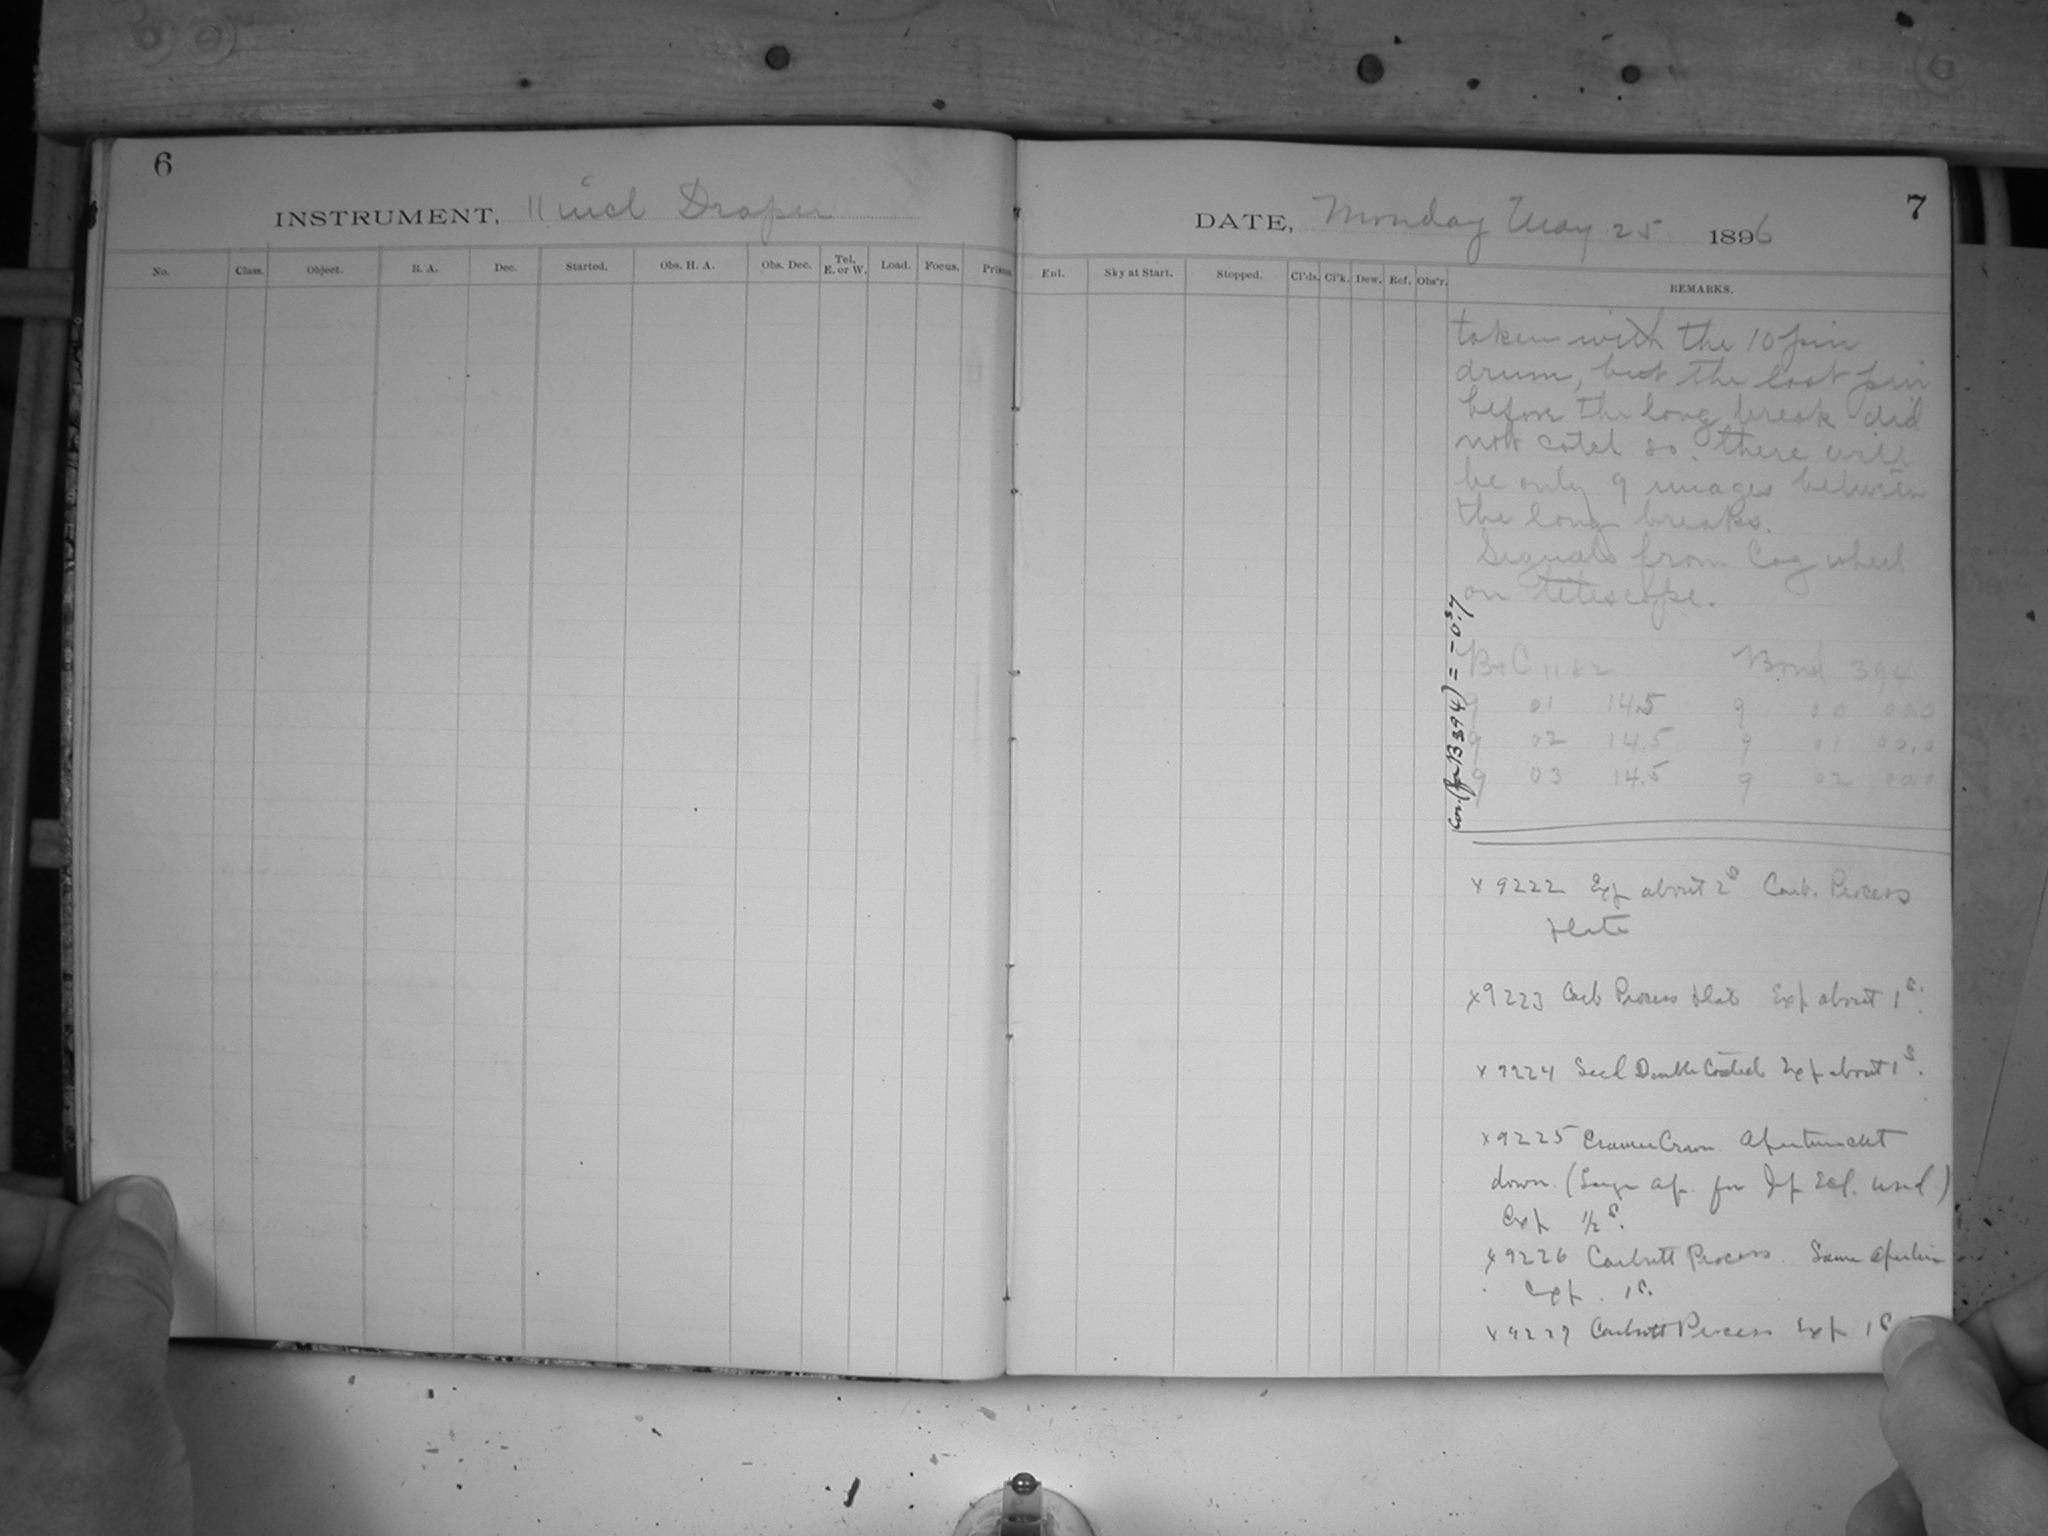 6
INSTRUMENT, 11 inch Draper
No. Class. Object. R. A. Dec. Started. Obs. H. A. Obs. Dec. Tel. E. or W. Load. Focus. Prisms
7
DATE, Monday May 25 1896
Enl. Sky at Start. Stopped. Cl'ds. Cl'k. Dew. Ref. Obs'r. REMARKS.
taken with the 10 pin
drum, but the last pin
before the long break did
not catch so there will
be only 9 images between
the long breaks.
Signals from Cog wheel
on telescope.
B+C 1182 Bond 394
9 01 14.5 9 00 00.0
9 02 14.5 9 01 00.0
9 03 14.5 9 02 00.0
Corr. (for B394) = -0.s7
x 9222 Exp about 2s Carb. Process
Plate
x 9223 Carb Process Plate Exp about 1s.
x 9224 Seed Double Coated Exp about 1s.
x 9225 Cramer Crown Aperture cut
down. (Large ap. for Jup Ecl. used.)
Exp 1/2 s.
x 9226 Carbutt Process. Same Aperture
Exp. 1s.
x 9227 Carbutt Process Exp 1s